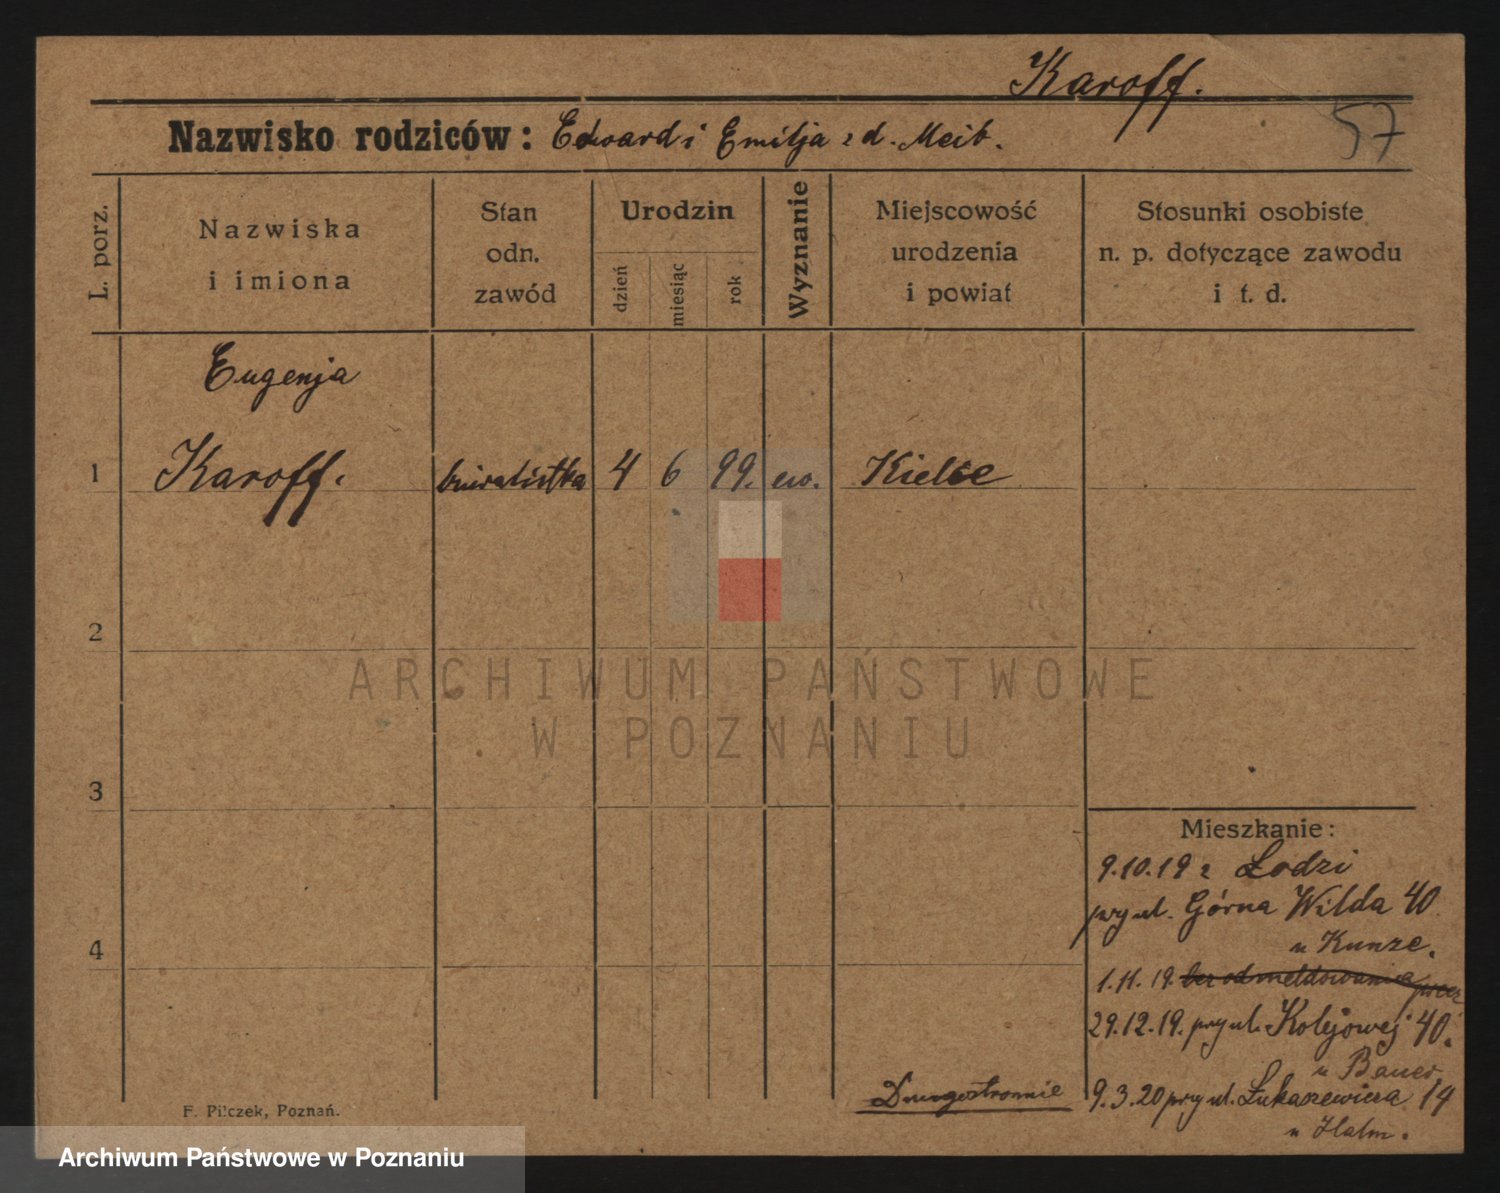 Karoff.
57
Nazwisko rodziców: Edward i Emilja z d. Meib.
L. porz.
Nazwiska
i imiona
Stan
odn.
zawód
Urodzin
dzień
miesiąc
rok
Wyznanie
Miejscowość
urodzenia
i powiat
Stosunki osobiste
n. p. dotyczące zawodu
i t. d.
Eugenja
1 Karoff. biuralistka 4 6 99. ew. Kielce
2
ARCHIWUM PAŃSTWOWE
W POZNANIU
3
Mieszkanie:
9.10.19 z Łodzi
przy ul. Górna Wilda 40
u Kunze.
4
1.11.19. bez odmeldowania
29.12.19. przy ul. Kolejowej 40.
u Bauer
9.3.20 przy ul. Łukaszewicza 14
u Halm.
Drugostronnie
F. Pilczek, Poznań.
Archiwum Państwowe w Poznaniu